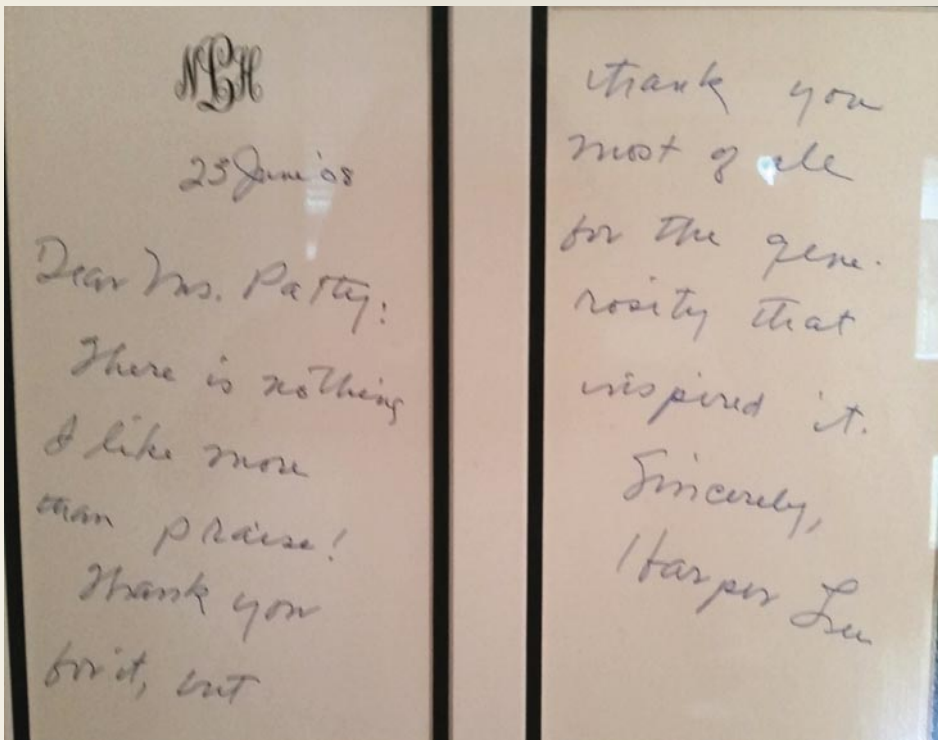 NLH
25 June '08
Dear Ms. Patty:
There is nothing
I like more
than praise!
Thank you
for it, but
thank you
most of all
for the gene-
rosity that
inspired it.
Sincerely,
Harper Lee